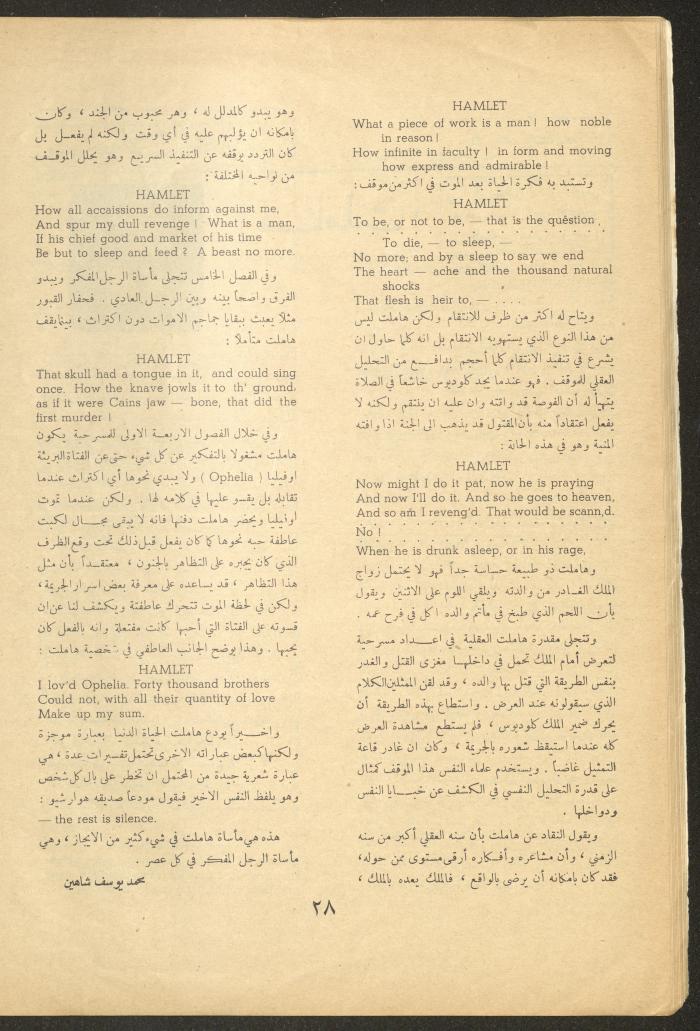 HAMLET
What a piece of work is a man ! how noble
in reason !
How infinite in faculty ! in form and moving
how express and admirable !
وتستبد به فكرة الحياة بعد الموت في اكثر من موقف :
HAMLET
To be, or not to be, — that is the question
. . . . . . . . . . . . . . . .
To die, — to sleep, —
No more; and by a sleep to say we end
The heart — ache and the thousand natural
shocks
That flesh is heir to, — . . . .
ويتاح له اكثر من ظرف للانتقام ولكن هاملت ليس
من هذا النوع الذي يستهويه الانتقام بل انه كلما حاول ان
يشرع في تنفيذ الانتقام كلما أحجم بدافع من التحليل
العقلي للموقف . فهو عندما يجد كلوديوس خاشعاً في الصلاة
يتهيأ له أن الفوصة قد واتته وان عليه ان ينتقم ولكنه لا
يفعل اعتقاداً منه بأن المقتول قد يذهب الى الجنة اذا وافته
المنية وهو في هذه الحالة :
HAMLET
Now might I do it pat, now he is praying
And now I'll do it. And so he goes to heaven,
And so am I reveng'd. That would be scann,d.
. . . . . . . . . . . . . . . .
No !
When he is drunk asleep, or in his rage,
وهاملت ذو طبيعة حساسة جداً فهو لا يحتمل زواج
الملك الغادر من والدته ويلقي اللوم على الاثنين ويقول
بأن اللحم الذي طبخ في مأتم والده اكل في فرح عمه .
وتتجلى مقدرة هاملت العقلية في اعداد مسرحية
لتعرض أمام الملك تحمل في داخلها مغزى القتل والغدر
بنفس الطريقة التي قتل بها والده ، وقد لقن الممثلين الكلام
الذي سيقولونه عند العرض . واستطاع بهذه الطريقة أن
يحرك ضمير الملك كلوديوس ، فلم يستطع مشاهدة العرض
كله عندما استيقظ شعوره بالجريمة ، وكان ان غادر قاعة
التمثيل غاضباً . ويستخدم علماء النفس هذا الموقف كمثال
على قدرة التحليل النفسي في الكشف عن خبايا النفس
ودواخلها .
ويقول النقاد عن هاملت بأن سنه العقلي أكبر من سنه
الزمني ، وأن مشاعره وأفكاره أرقى مستوى ممن حوله ،
فقد كان بامكانه أن يرضى بالواقع ، فالملك يعده بالملك ،
وهو يبدو كالمدلل له ، وهر محبوب من الجند ، وكان
بامكانه ان يؤلبهم عليه في أي وقت ولكنه لم يفعل بل
كان التردد يوقفه عن التنفيذ السريع وهو يحلل الموقف
من نواحيه المختلفة :
HAMLET
How all accaissions do inform against me,
And spur my dull revenge ! What is a man,
If his chief good and market of his time
Be but to sleep and feed ? A beast no more.
وفي الفصل الخامس تتجلى مأساة الرجل المفكر ويبدو
الفرق واضحاً بينه وبين الرجل العادي . فحفار القبور
مثلاً يعبث ببقايا جماجم الاموات دون اكتراث ، بينما يقف
هاملت متأملاً :
HAMLET
That skull had a tongue in it, and could sing
once. How the knave jowls it to th' ground,
as if it were Cains jaw — bone, that did the
first murder !
وفي خلال الفصول الاربعة الاولى للمسرحية يكون
هاملت مشغولا بالتفكير عن كل شيء حتى عن الفتاة البريئة
اوفيليا ( Ophelia ) ولا يبدي نحوها أي اكتراث عندما
تقابله بل يقسو عليها في كلامه لها . ولكن عندما تموت
اوفيليا ويحضر هاملت دفنها فانه لا يبقى مجال لكبت
عاطفة حبه نحوها كما كان يفعل قبل ذلك تحت وقع الظرف
الذي كان يجبره على التظاهر بالجنون ، معتقداً بأن مثل
هذا التظاهر ، قد يساعده على معرفة بعض اسرار الجريمة ،
ولكن في لحظة الموت تتحرك عاطفتة ويكشف لنا عن ان
قسوته على الفتاة التي أحبها كانت مفتعلة وانه بالفعل كان
يحبها . وهذا يوضح الجانب العاطفي في شخصية هاملت :
HAMLET
I lov'd Ophelia. Forty thousand brothers
Could not, with all their quantity of love
Make up my sum.
واخيراً يودع هاملت الحياة الدنيا بعبارة موجزة
ولكنها كبعض عباراته الاخرى تحتمل تفسيرات عدة ، هي
عبارة شعرية جيدة من المحتمل ان تخطر على بال كل شخص
وهو يلفظ النفس الاخير فيقول مودعاً صديقه هوارشيو :
— the rest is silence.
هذه هي مأساة هاملت في شيء كثير من الايجاز ، وهي
مأساة الرجل المفكر في كل عصر .
محمد يوسف شاهين
٢٨